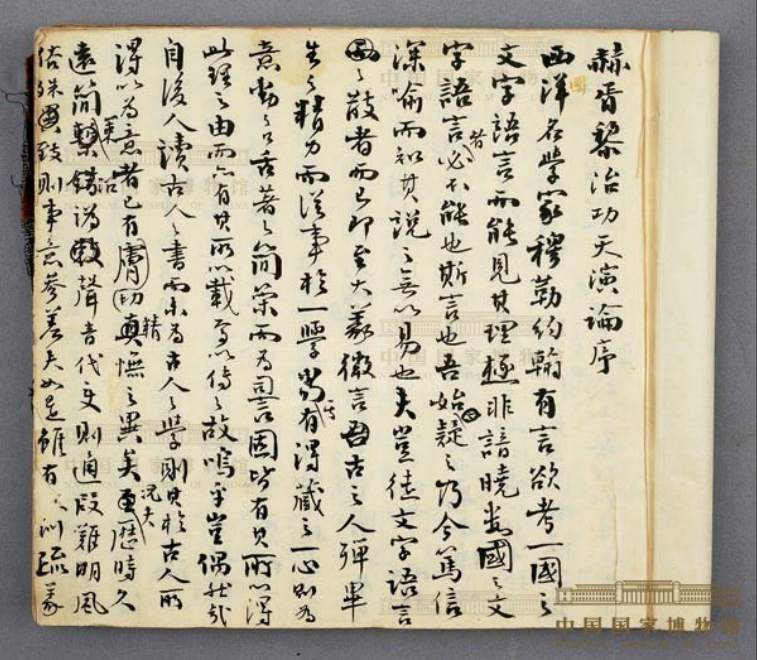 赫胥黎治功天演論序
西洋名學家穆勒約翰有言欲考一國之
文字語言而能見其理極非諳曉數國之文
字語言者必不能也斯言也吾始疑之乃今篤信
深喻而知其說之無以易也夫豈徒文字語言
之散者而已即至大義微言古之人殫畢
生之精力而從事於一學當有得藏之一心則為
意動之口舌著之簡策而為詞固皆有其所以得
此理之由而亦有其所以載焉以傳之故嗚乎豈偶然哉
自後人讀古人之書而未為古人之學則其於古人所
得以為意者已有膚切精憮之異矣况夫歷時久
遠簡沿錯譌聲音代變則通叚難明風
俗殊致則事意參差夫如是雖有訓疏義
中国国家博物馆